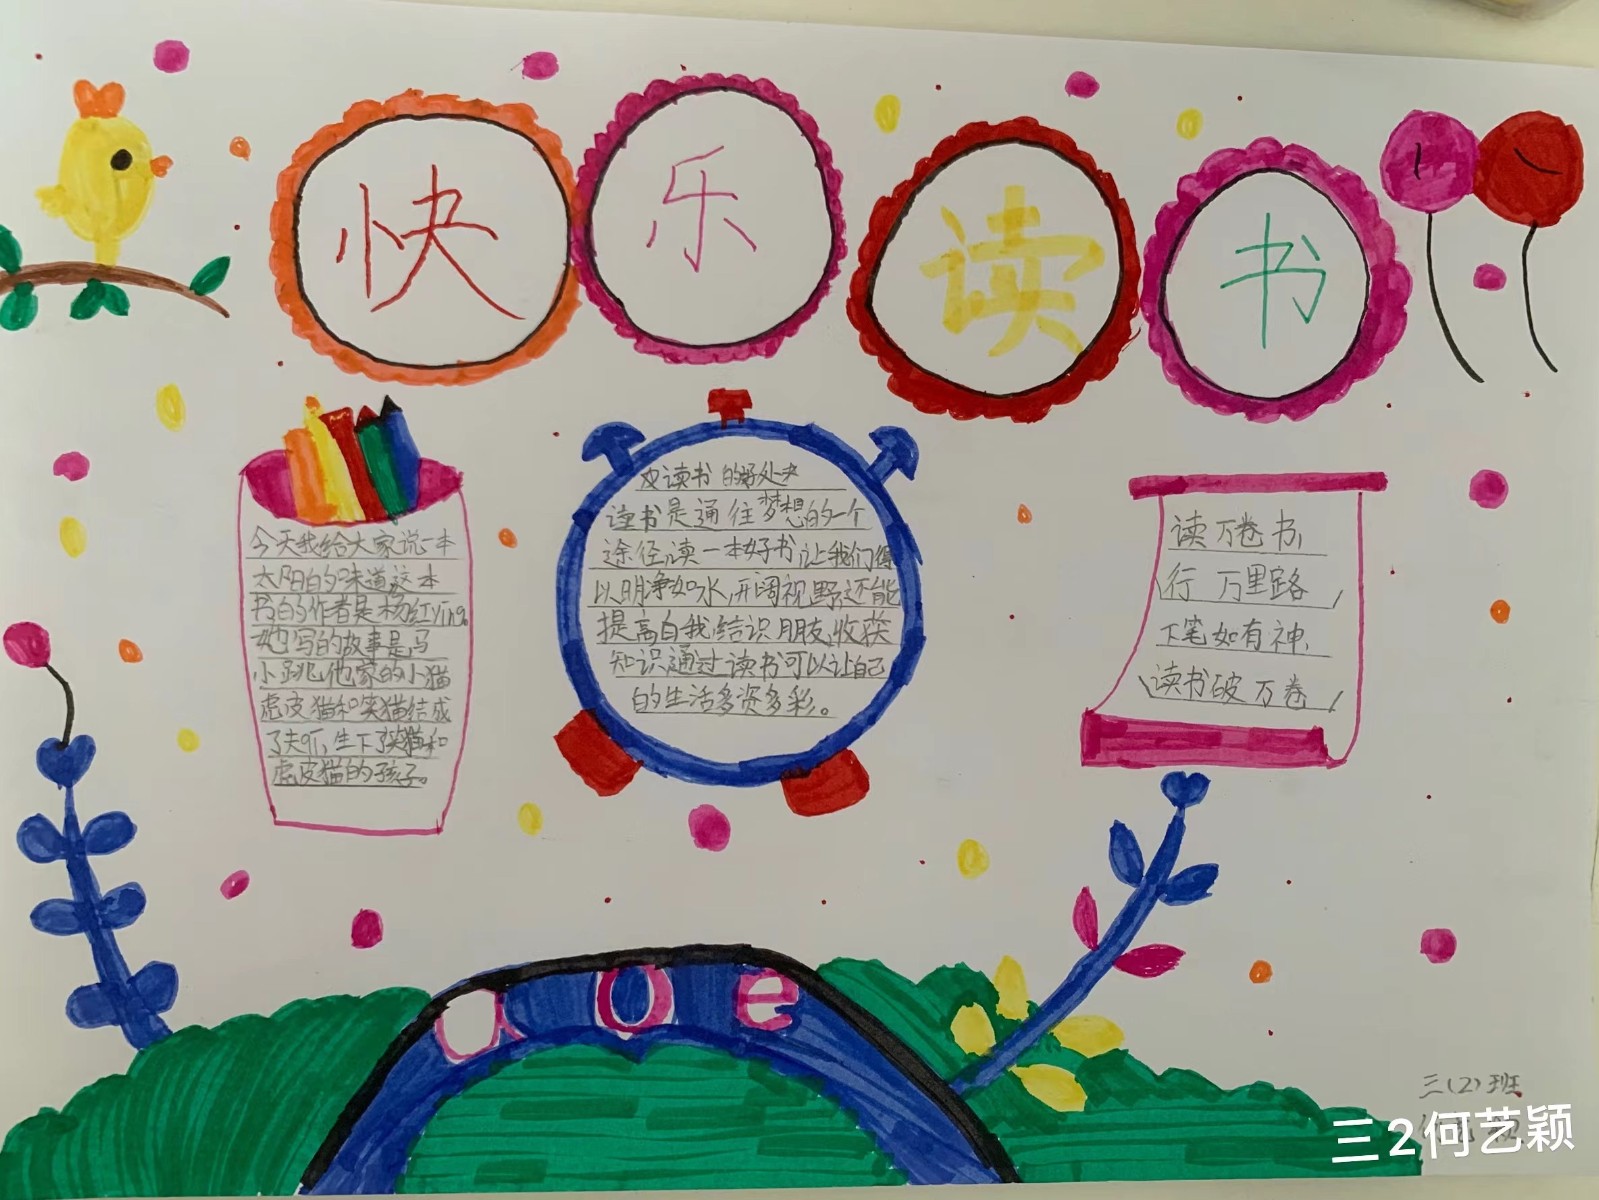 快乐读书
今天我给大家说一本
太阳的味道这本
书的作者是杨红ying。
她写的故事是马
小跳他家的小猫
虎皮猫和笑猫结成
了夫,生下了笑猫和
虎皮猫的孩子。
读书的好处
读书是通往梦想的一个
途径,读一本好书,让我们得
以明净如水,开阔视野,还能
提高自我,结识朋友,收获
知识通过读书可以让自己
的生活多资多彩。
读万卷书,
行万里路
下笔如有神,
读书破万卷
a o e
三(2)班
三2何艺颖